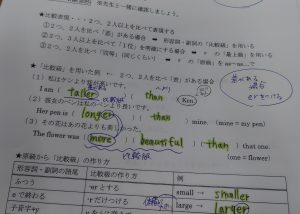 先生と一緒に確認しましょう。
★比較表現・・・2つ、2人以上を比べて表現する
①2つ、2人を比べ「差」がある場合 ⇒ 形容詞・副詞の「比較級」を用いる
②2つ、2人を比べ「1位」を明確にする場合 ⇒ の「最上級」を用いる
③2つ、2人を比べ「同等」(同じくらい) ⇒ の「原級」を
★「比較級」を用いた例 ・・・2つ、2人を比べ「差」がある場合
差がある
場合
erをつける
(1) 私はケンより背が高いです。
比較級
より
I am ( taller ) ( than ) Ken.
(2) 彼女のペンは私のペンより長いです。
Her pen is ( longer ) ( than ) mine. (mine = my pen)
(3) その花はあの花よりも美しかった。
The flower was ( more ) ( beautiful ) ( than ) that one.
比較級
(one = flower)
★原級から「比較級」の作り方
形容詞・副詞の語尾 比較級の作り方 例
ふつう -erとする small → smaller
eで終わる -rだけつける large → larger
子音字+y